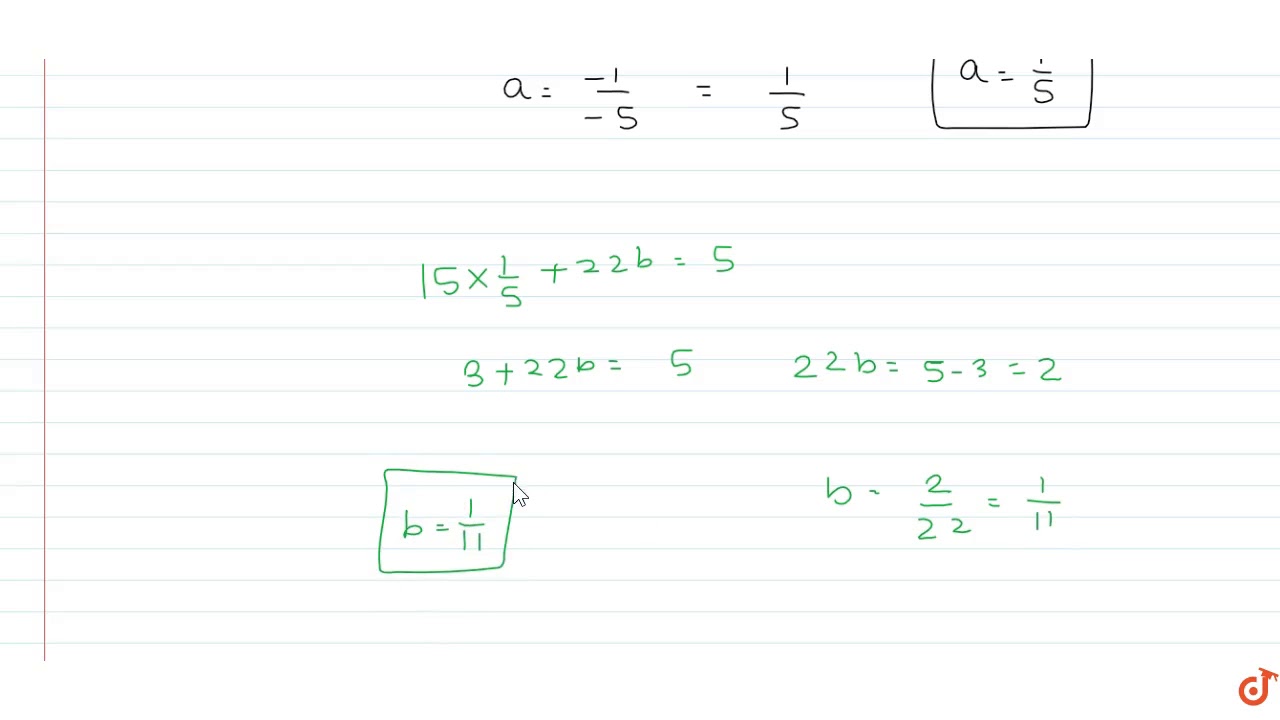 a = -1/-5 = 1/5 a = 1/5
15 × 1/5 + 22b = 5
3 + 22b = 5 22b = 5 - 3 = 2
b = 1/11 b = 2/22 = 1/11